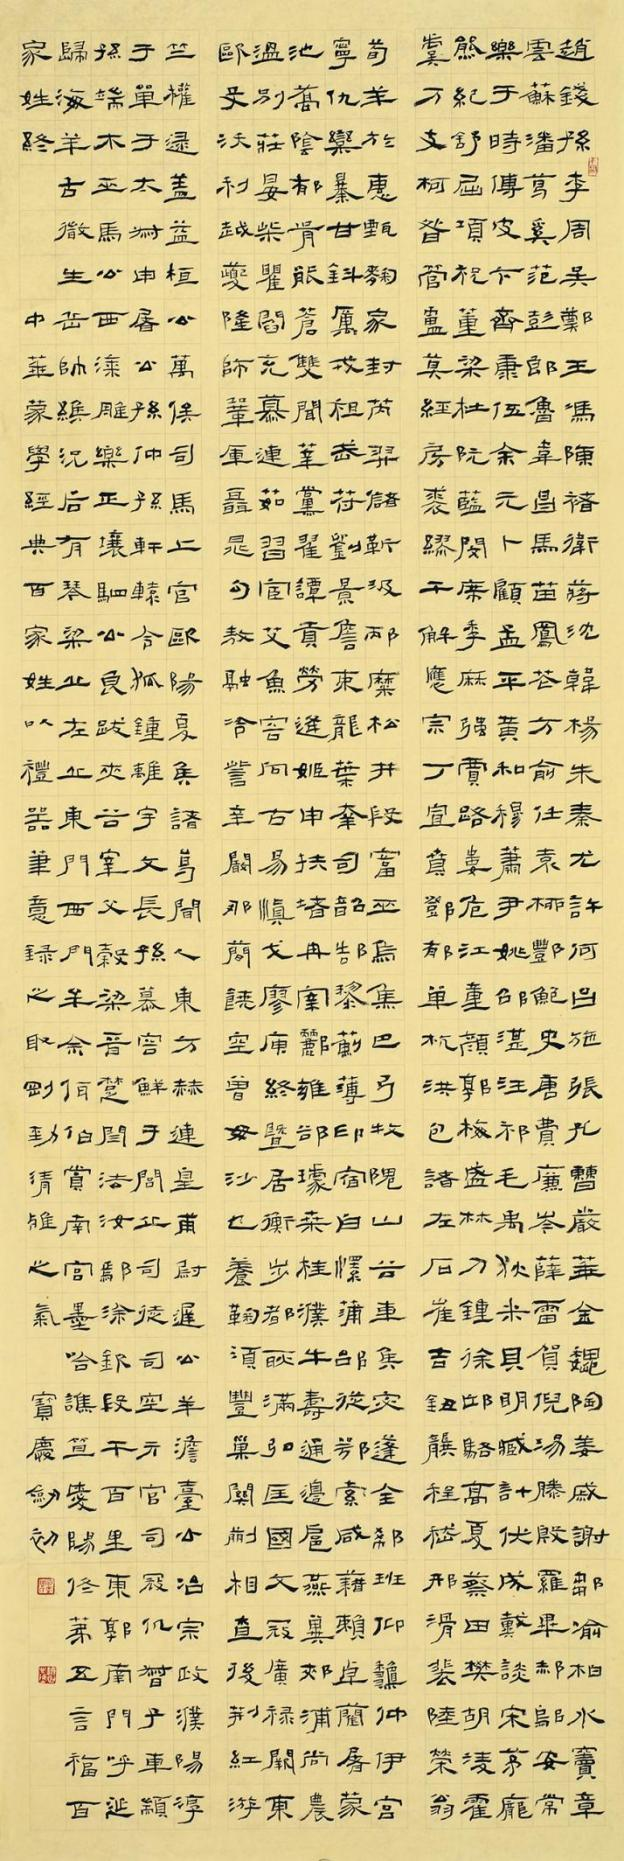 趙錢孫李周吳鄭王馮陳褚衛蔣沈韓楊朱秦尤許何呂施張孔曹嚴華金魏陶姜戚謝鄒喻柏水竇章
雲蘇潘葛奚范彭郎魯韋昌馬苗鳳花方俞任袁柳酆鮑史唐費廉岑薛雷賀倪湯滕殷羅畢郝鄔安常
樂于時傅皮卞齊康伍余元卜顧孟平黃和穆蕭尹姚邵湛汪祁毛禹狄米貝明臧計伏成戴談宋茅龐
熊紀舒屈項祝董梁杜阮藍閔席季麻强賈路婁危江童顏郭梅盛林刁鍾徐邱駱高夏蔡田樊胡凌霍
虞万支柯昝管盧莫經房裘繆干解應宗丁宣賁鄧郁單杭洪包諸左石崔吉鈕龔程嵇邢滑裴陸榮翁
荀羊於惠甄麴家封芮羿儲靳汲邴糜松井段富巫烏焦巴弓牧隗山谷車侯宓蓬全郗班仰龝仲伊宮
寧仇欒暴甘鈄厲戎祖武符劉景詹束龍葉幸司韶郜黎薊薄印宿白懷蒲邰從鄂索咸籍賴卓藺屠蒙
池喬陰郁胥能蒼雙聞莘黨翟譚貢勞逄姬申扶堵冉宰酈雍郤璩桑桂濮牛壽通邊扈燕冀郟浦尚農
溫別莊晏柴瞿閻充慕連茹習宦艾魚容向古易慎戈廖庾終暨居衡步都耿滿弘匡國文寇廣祿闕東
歐殳沃利越夔隆師鞏厙聶晁勾敖融冷訾辛闞那簡饒空曾毋沙乜養鞠須豐巢關蒯相查後荆紅游
竺權逯蓋益桓公萬俟司馬上官歐陽夏侯諸葛聞人東方赫連皇甫尉遲公羊澹臺公冶宗政濮陽淳
于單于太叔申屠公孫仲孫軒轅令狐鍾離宇文長孫慕容鮮于閭丘司徒司空亓官司寇仉督子車顓
孫端木巫馬公西漆雕樂正壤駟公良跋夾谷宰父穀梁晉楚閆法汝鄢涂欽段干百里東郭南門呼延
歸海羊舌微生岳帥緱況后有琴梁丘左丘東門西門牟佘佴伯賞南宮墨哈譙笪愛陽佟第五言福百
家姓終 中華蒙學經典百家姓以禮器筆意録之取剛勁清雄之氣 寶慶劍初